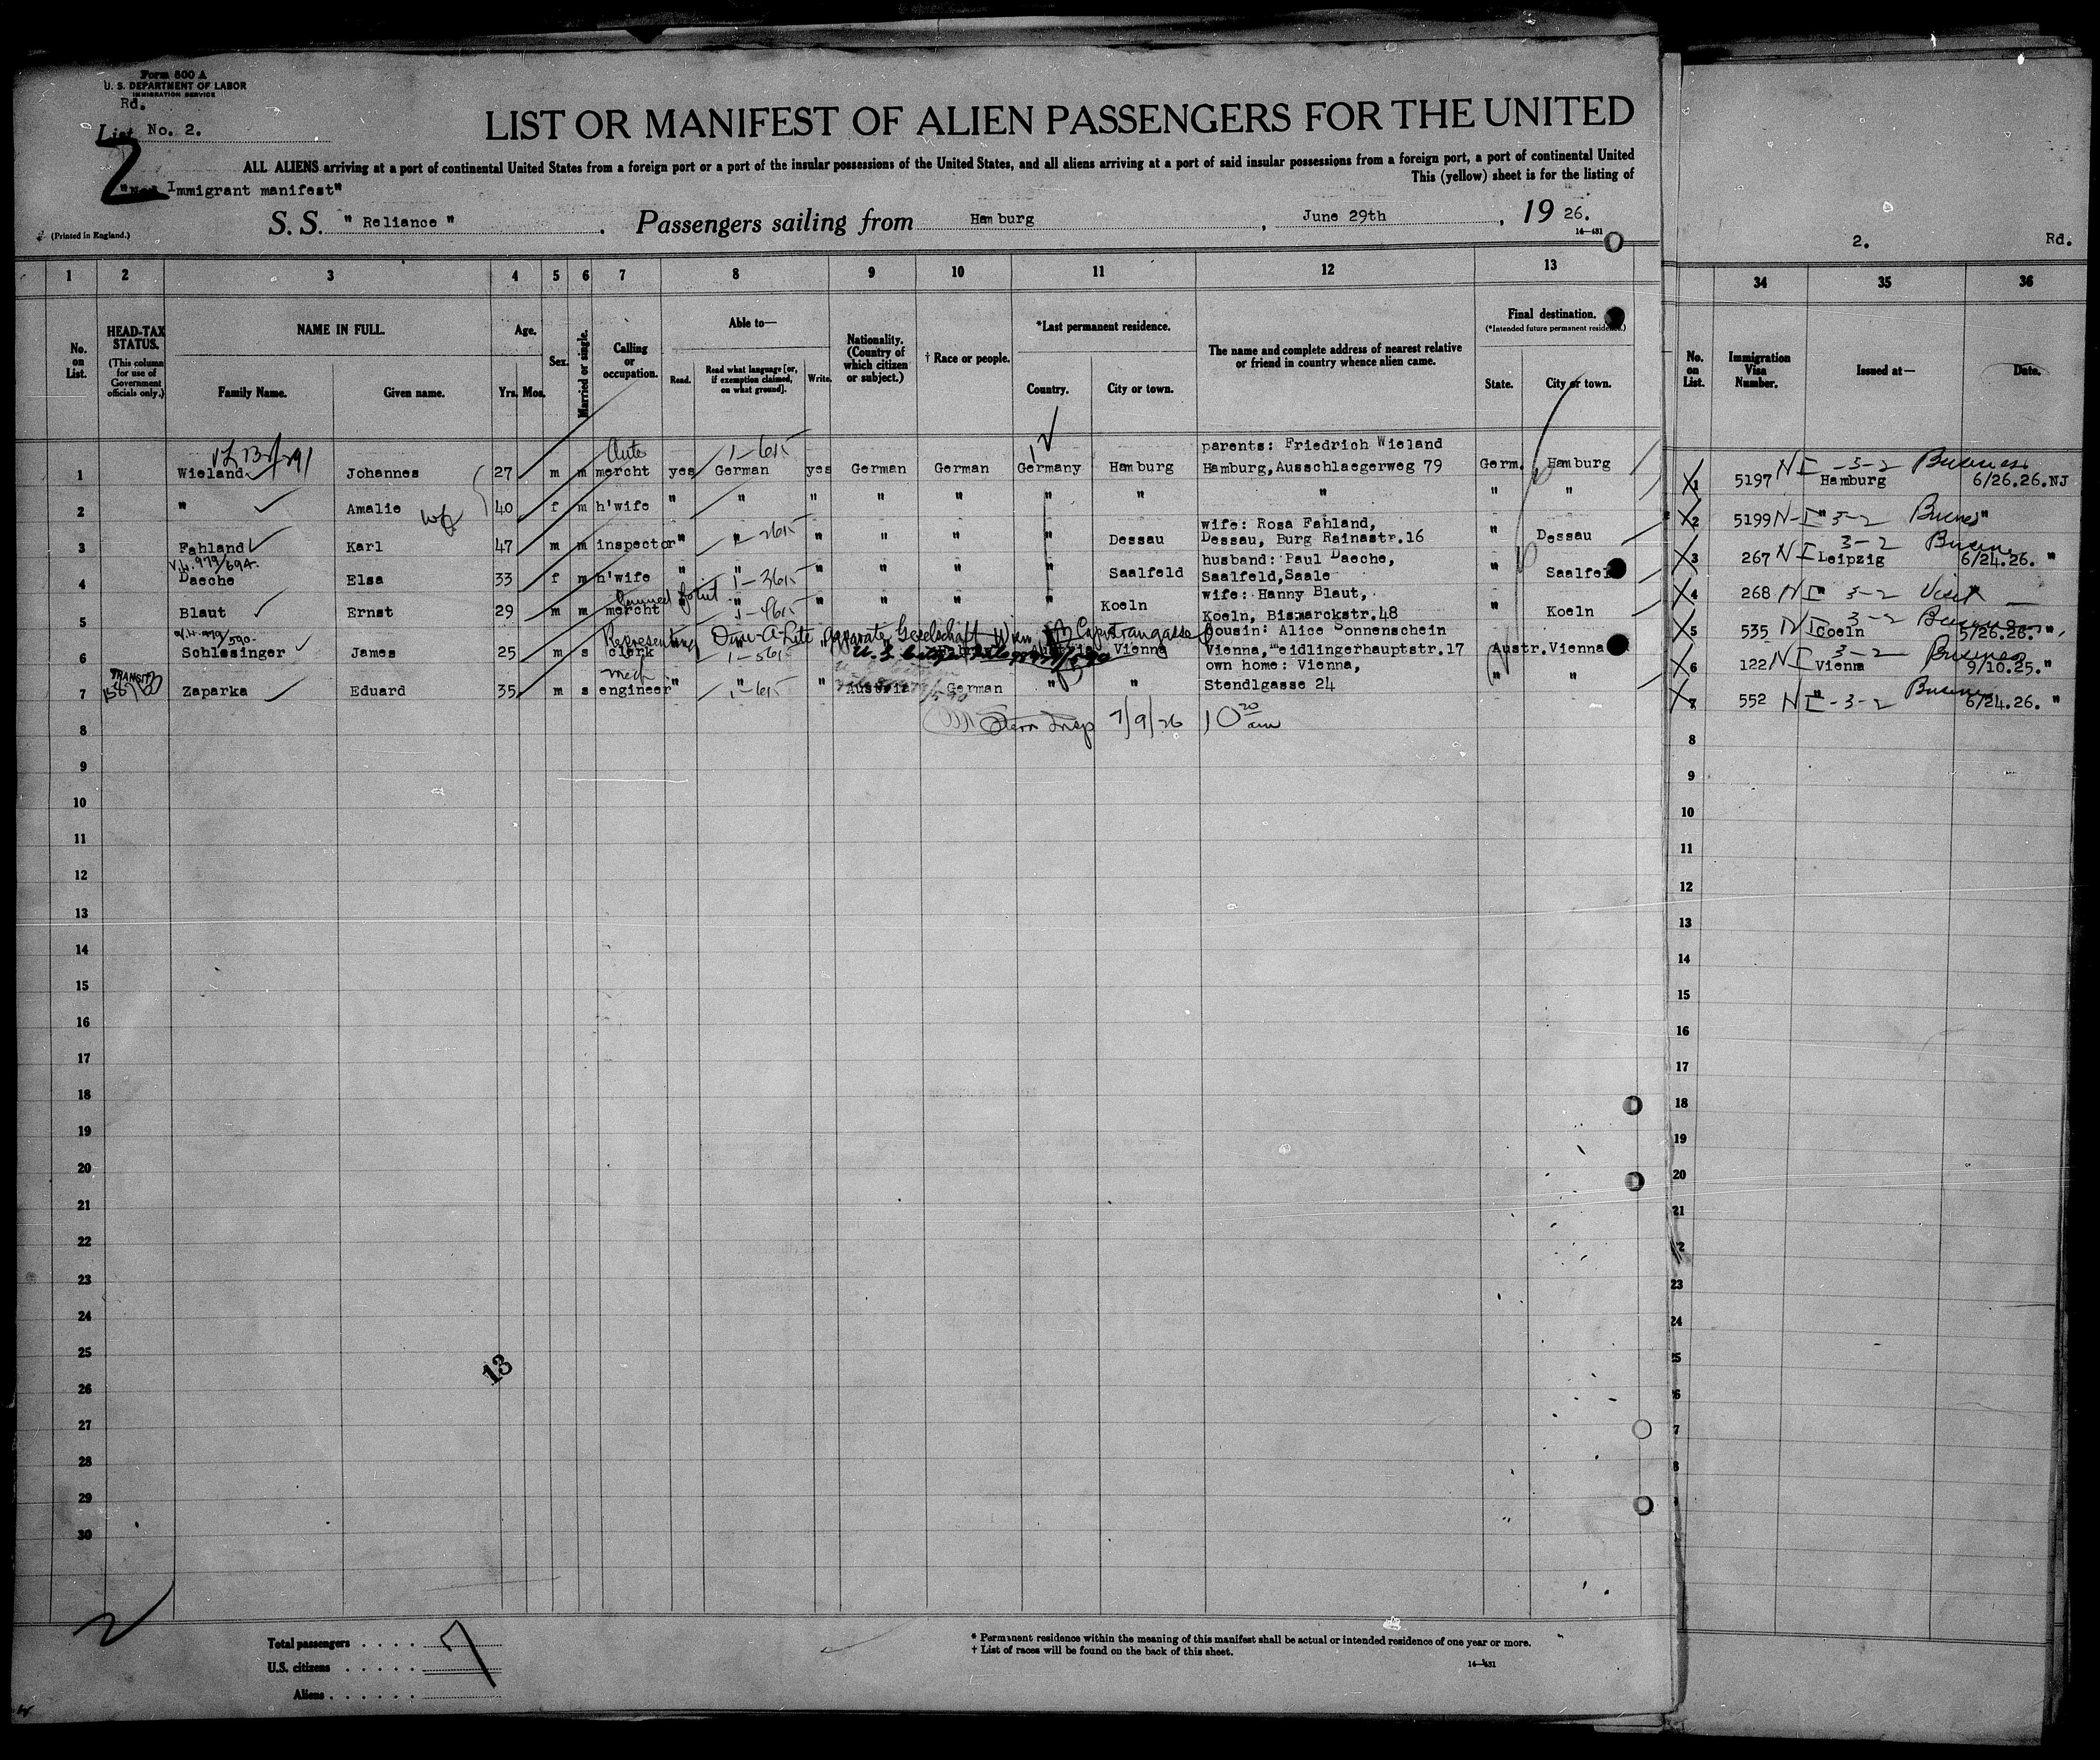 Form 500 A
U. S. DEPARTMENT OF LABOR
IMMIGRATION SERVICE
Rd.
List No. 2.
2
LIST OR MANIFEST OF ALIEN PASSENGERS FOR THE UNITED
ALL ALIENS arriving at a port of continental United States from a foreign port or a port of the insular possessions of the United States, and all aliens arriving at a port of said insular possessions from a foreign port, a port of continental United
This (yellow) sheet is for the listing of
Immigrant manifest"
S. S. " Reliance " . Passengers sailing from Hamburg , June 29th , 19 26.
(Printed in England.)
14—431
2. Rd.
1 2 3 4 5 6 7 8 9 10 11 12 13 34 35 36
No. on List.
HEAD-TAX STATUS.
(This column for use of Government officials only.)
NAME IN FULL.
Family Name. Given name.
Age.
Yrs. Mos.
Sex.
Married or single.
Calling or occupation.
Able to—
Read. Read what language [or, if exemption claimed, on what ground]. Write.
Nationality. (Country of which citizen or subject.)
† Race or people.
*Last permanent residence.
Country. City or town.
The name and complete address of nearest relative or friend in country whence alien came.
Final destination.
(*Intended future permanent residence.)
State. City or town.
No. on List.
Immigration Visa Number.
Issued at—
Date.
parents: Friedrich Wieland
1 Wieland Johannes 27 m m mercht yes German yes German German Germany Hamburg Hamburg, Ausschlaegerweg 79 Germ. Hamburg
1 5197 NI -3-2 Business Hamburg 6/26.26. NJ
2 " Amalie 40 f m h'wife " " " " " " " " " "
2 5199 NI " 3-2 "
wife: Rosa Fahland,
3 Fahland Karl 47 m m inspector " " " " " " Dessau Dessau, Burg Rainastr.16 " Dessau
3 267 NI 3-2 Leipzig 6/24.26. "
husband: Paul Daeche,
4 Daeche Elsa 33 f m h'wife " " " " " " Saalfeld Saalfeld, Saale " Saalfel
4 268 NI " 3-2 Visit
wife: Hanny Blaut,
5 Blaut Ernst 29 m m mercht " " " " " " Koeln Koeln, Bismarckstr.48 " Koeln
5 535 NI 3-2 Coeln 5/26.26. "
Representing
cousin: Alice Sonnenschein
6 Schlesinger James 25 m s clerk Austria Vienna Vienna, Meidlingerhauptstr.17 Austr. Vienna
6 122 NI 3-2 Business Vienna 9/10.25. "
TRANSIT
mech
own home: Vienna,
7 Zaparka Eduard 35 m s engineer " " " Austria German " " Stendlgasse 24 " "
7 552 NI " -3-2 Business 6/24.26. "
Insp 7/9/26 10 20 am
8 8
9 9
10 10
11 11
12 12
13 13
14 14
15 15
16 16
17 17
18 18
19 19
20 20
21 21
22
23 23
24 24
25
26
27
28
29
30
13
Total passengers . . . . 7
U.S. citizens . . . . .
Aliens . . . . . .
* Permanent residence within the meaning of this manifest shall be actual or intended residence of one year or more.
† List of races will be found on the back of this sheet.
14—431